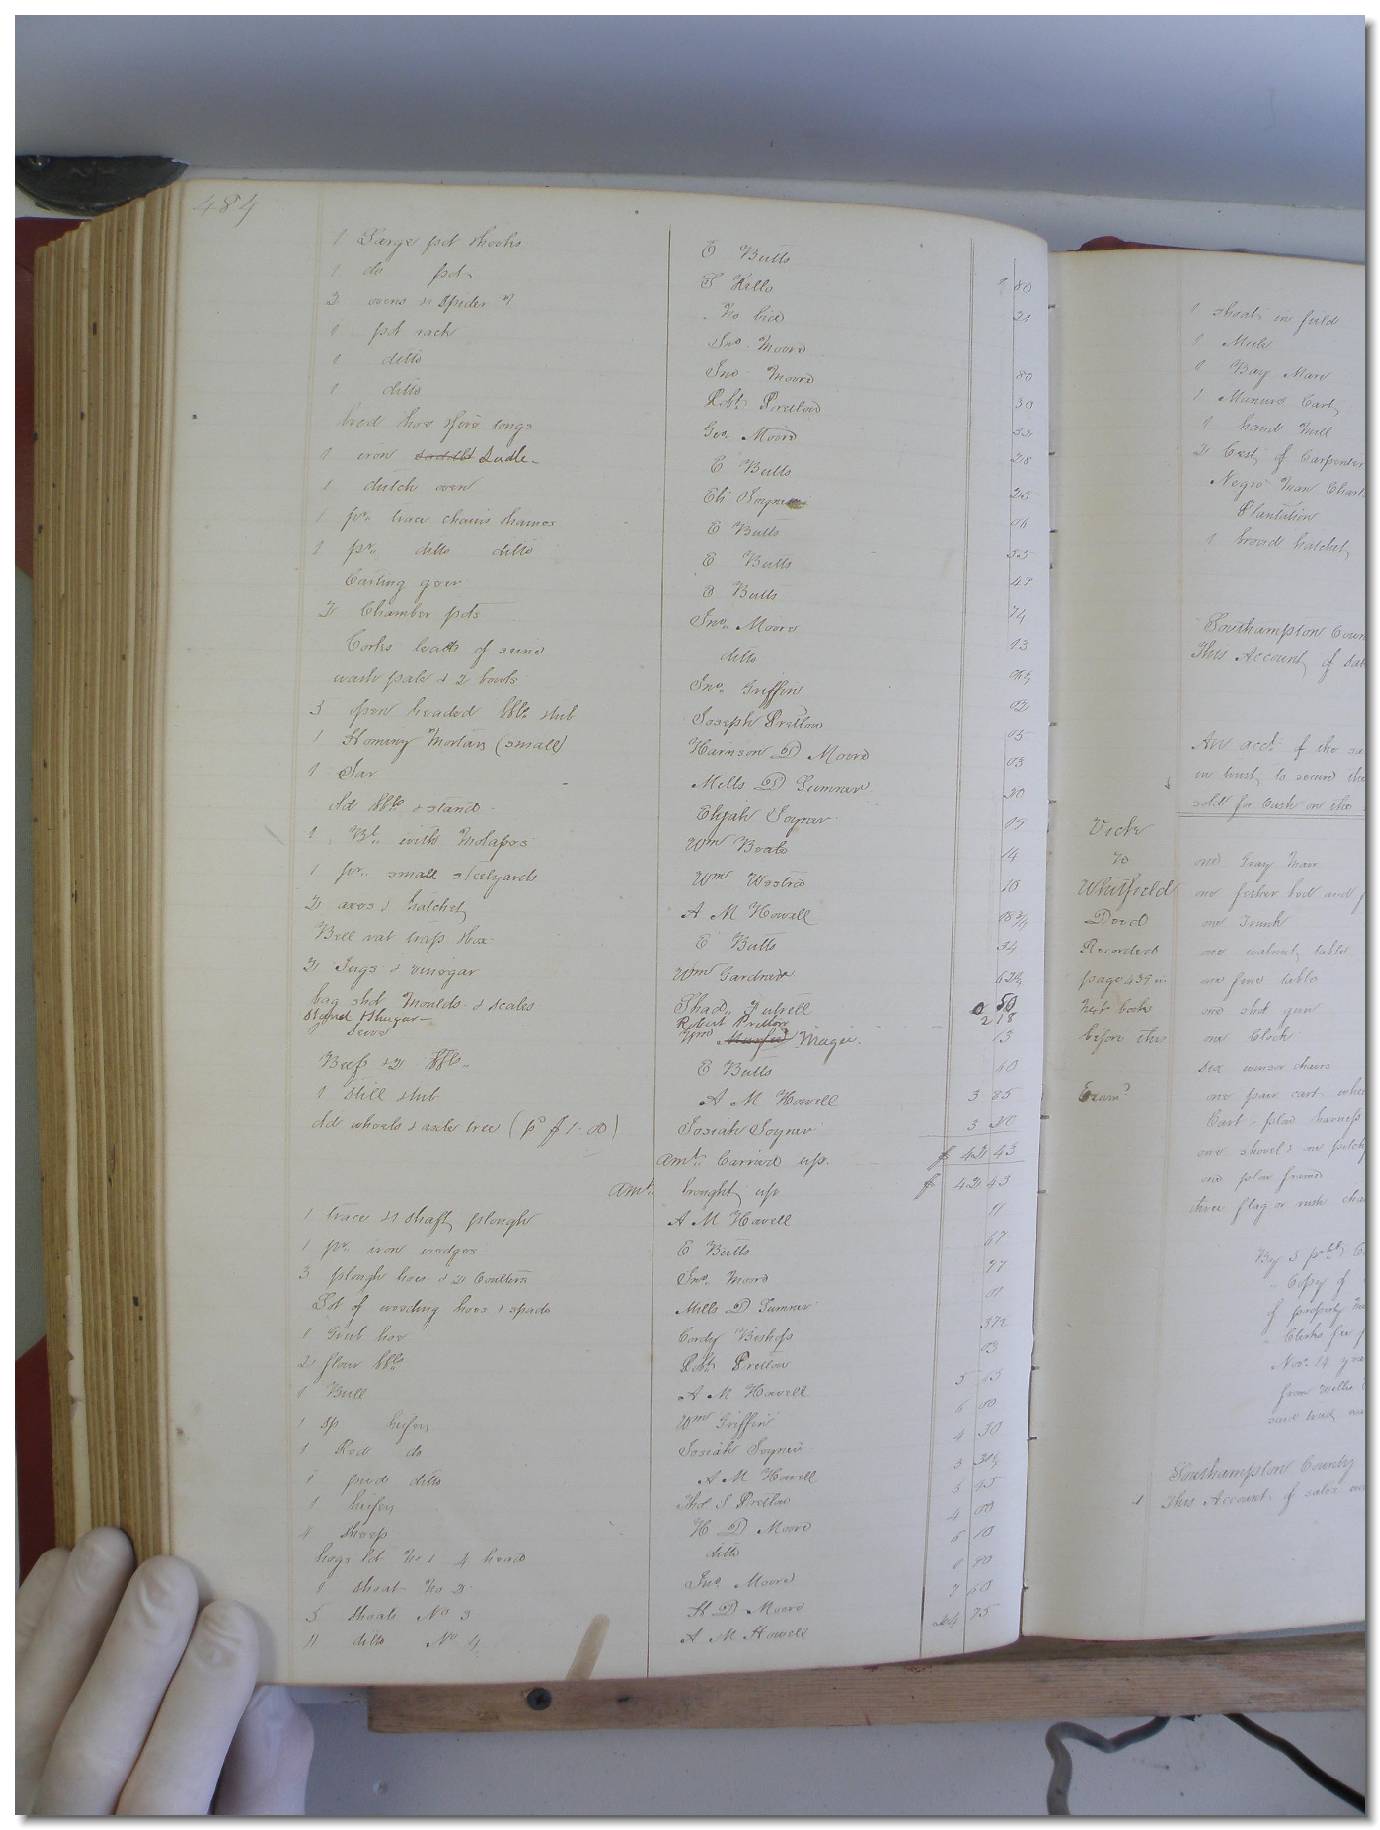 484
1 Large pot & hooks E Butts
1 do pot T Hills 1 80
2 ovens & Spider No bid 21
1 pot rack Jno. Moore
1 ditto Jno Moore 80
1 ditto Rt. Pretlow 30
Geo. Moore
1 iron Ladle E Butts 28
1 dutch oven Eli Joyner 25
1 pr. trace chains & hames E Butts 06
1 pr. ditto ditto E Butts 55
Carting gear E Butts
2 Chamber pots Jno. Moore 74
Corks leads of seine ditto 13
wash pale & 2 bowls Jno. Griffin 06¼
3 headed bbls & tub Joseph Pretlow 02
1 Hominy Mortar (small) Harrison D Moore 05
1 Jar Mills D Sumner 03
Old bbls & stand Elijah Joyner 20
1 Bl. with Molasses Wm Beale 15
1 pr. small stelyards Wm Westra 14
2 axes & hatchet A M Howell 10
Bell rat trap & box E Butts 18¾
2 Jugs & vinegar Wm Gardner 34
bag shot, Moulds & scales Shad. Futrell 62½
Stand & Shugar Robert Pretlow 50
Seive Wm Magee. 2 18
13
Beef & 2 bbls. E Butts 60
1 Still & tub A M Howell 3 85
Old wheels & axle tree (pd $1.00) Josiah Joyner 3 20
Amt. Carried up. $ 42 43
Amt. brought up $ 42 43
1 trace & 1 shaft plough A M Howell 11
1 pr. iron wedges E Butts 67
3 plough hoes & 2 Coulters Jno. Moore 27
Lot of weeding hoes & spade Mills D Sumner 01
1 Grub hoe Cordy Bishop 37½
2 flour bbls Rt. Pretlow 03
1 Bull A M Howell 5 15
1 sp heifer Wm Griffin 6 00
1 Red do Josiah Joyner 4 50
1 pied ditto A M Howell 3 31¼
1 heifer Thos S Pretlow 5 45
4 Sheep H D Moore 4 00
hogs lot No 1 4 head ditto 6 10
1 Shoat No 2 Jno. Moore 1 80
5 Shoats No 3 H D Moore 7 60
11 ditto No 4 A M Howell 24 75
1 shoat in field
1 Mule
1 Bay Mare
1 Manure Cart
1 hand Mill
2 Cest of Carpenter
Negro Man Charl
Plantation
1 broad hatchet
Southampton Coun
This Account of sal
An acct of the sa
in trust to secure the
sold for Cash on the
Vick
to
Whitfield
Deed
Recorded
page 439 in
next book
before this
Exam.d
one Gray Mare
one fether bed and f
one Trunk
one walnut table
one pine table
one shot gun
one Clock
six winsor chairs
one pair cart whe
Cart & plow harness
one shovel & one pitch
one plow frame
three flag or rush cha
Copy of
of property
Clerks fee
Nov. 14
from Willie
Southampton County
This Account of sales